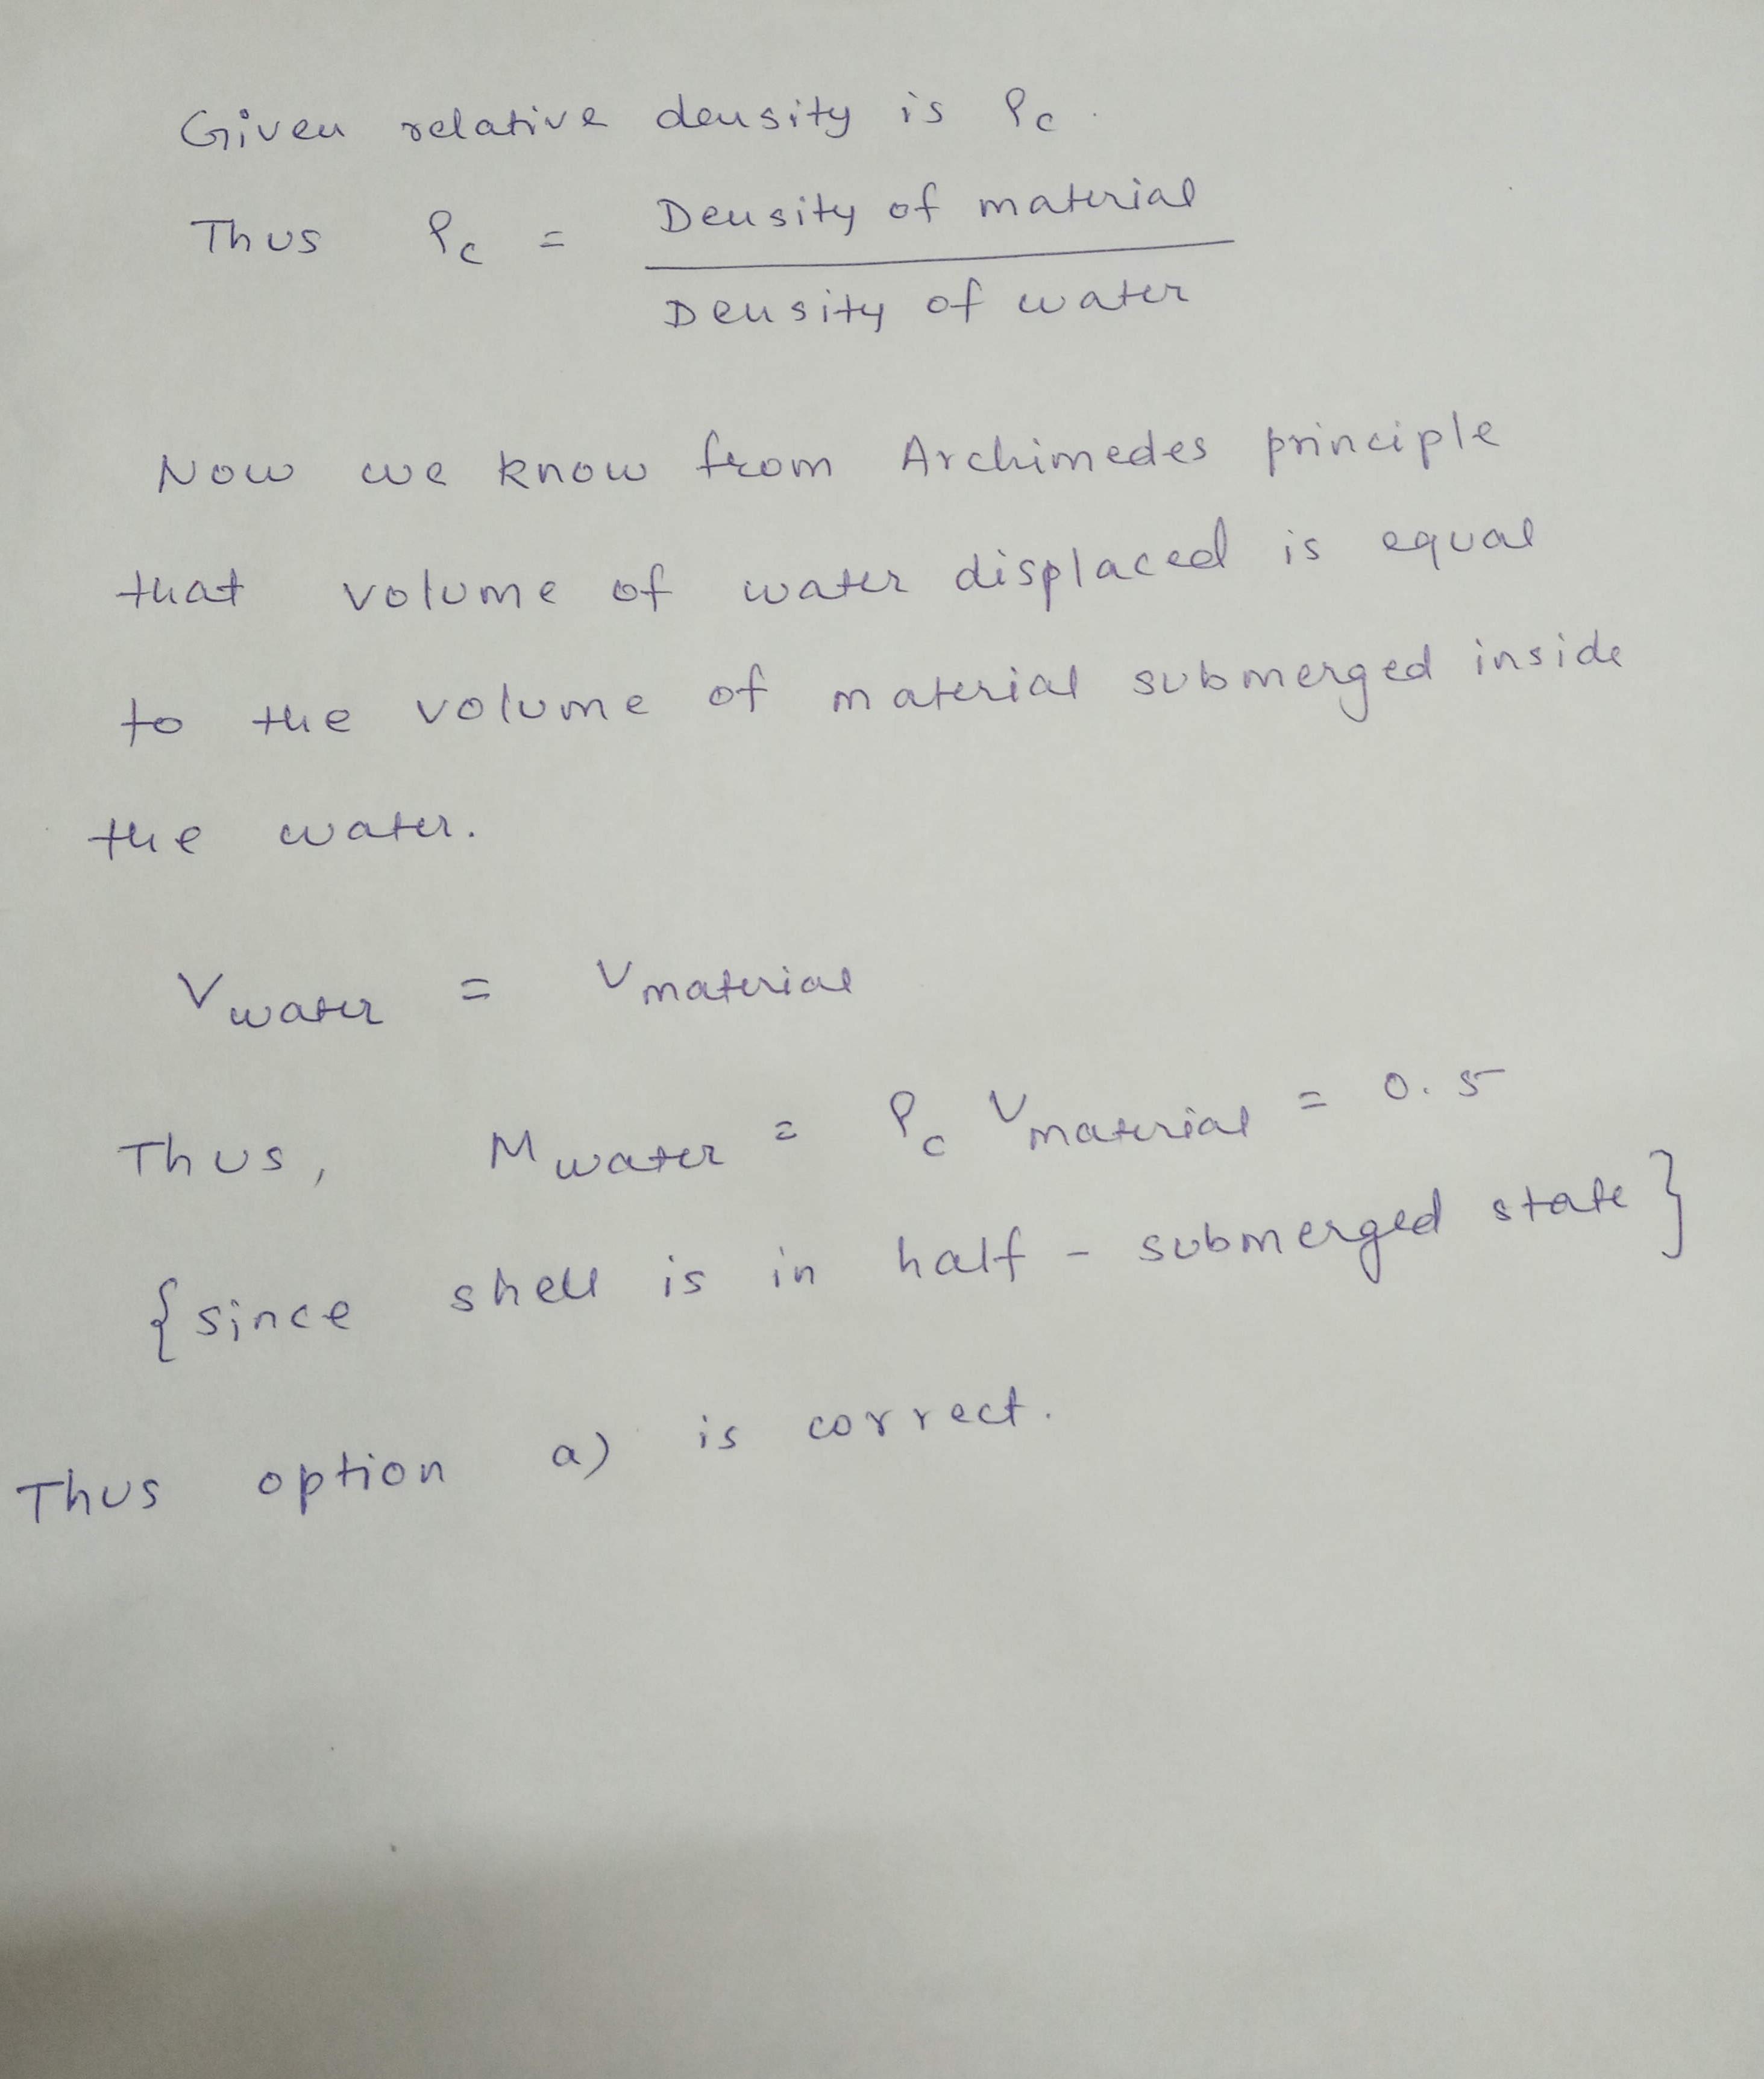 Given relative density is ρc.
Thus ρc = Density of material
Density of water
Now we know from Archimedes principle
that volume of water displaced is equal
to the volume of material submerged inside
the water.
Vwater = Vmaterial
Thus, Mwater = ρc Vmaterial = 0.5
{since shell is in half - submerged state}
Thus option a) is correct.